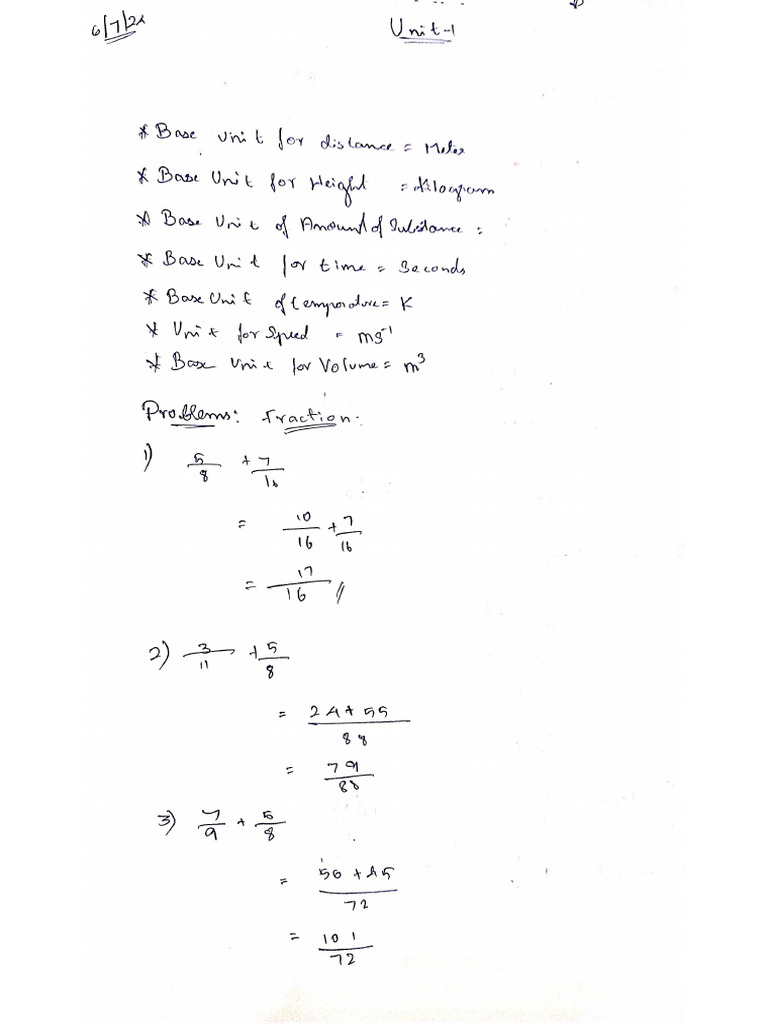 6/7/24
Unit-1
* Base Unit for distance = Meter
* Base Unit for Height = Kilogram
* Base Unit of Amount of Substance =
* Base Unit for time = Seconds
* Base Unit of temperature = K
* Unit for Speed = ms⁻¹
* Base Unit for Volume = m³
Problems: Fraction.
1) 5/8 + 7/16
= 10/16 + 7/16
= 17/16 //
2) 3/11 + 5/8
= 24+55/88
= 79/88
3) 7/9 + 5/8
= 56+45/72
= 101/72